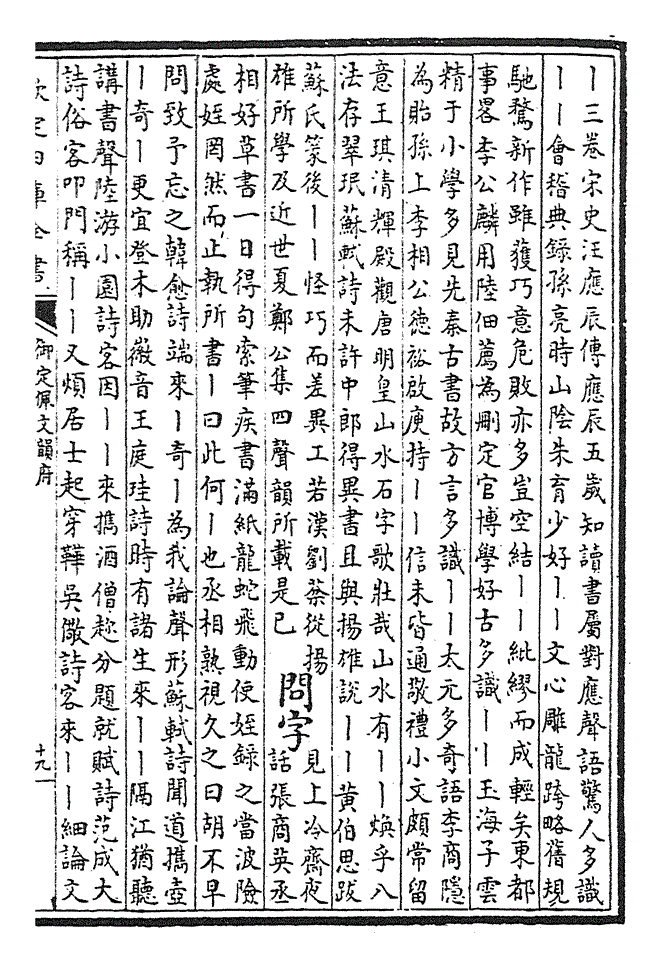 丨三卷宋史汪應辰傳應辰五歲知讀書屬對應聲語驚人多識
丨丨會稽典錄孫亮時山陰朱育少好丨丨文心雕龍跨略舊規
馳騖新作雖獲巧意危敗亦多豈空結丨丨紕繆而成輕矣東都
事畧李公麟用陸佃薦為刪定官博學好古多識丨丨玉海子雲
精于小學多見先秦古書故方言多識丨丨太元多奇語李商隱
為貽孫上李相公德裕啟庾持丨丨信未皆通敬禮小文頗常留
意王琪清輝殿觀唐明皇山水石字歌壯哉山水有丨丨煥乎八
法存翠珉蘇軾詩未許中郎得異書且與揚雄說丨丨黄伯思跋
蘇氏篆後丨丨怪巧而差異工若漢劉蔡從揚
雄所學及近世夏鄭公集四聲韻所載是已
問字
見上冷齋夜
話張商英丞
相好草書一日得句索筆疾書滿紙龍蛇飛動使姪録之當波險
處姪罔然而止執所書丨曰此何丨也丞相熟視久之曰胡不早
問致予忘之韓愈詩端來丨奇丨為我論聲形蘇軾詩聞道攜壺
丨奇丨更宜登木助徽音王庭珪詩時有諸生來丨丨隔江猶聽
講書聲陸游小園詩客因丨丨來攜酒僧趂分題就賦詩范成大
詩俗客叩門稱丨丨又煩居士起穿鞾吳儆詩客來丨丨細論文
欽定四庫全書
御定佩文韻府
十九